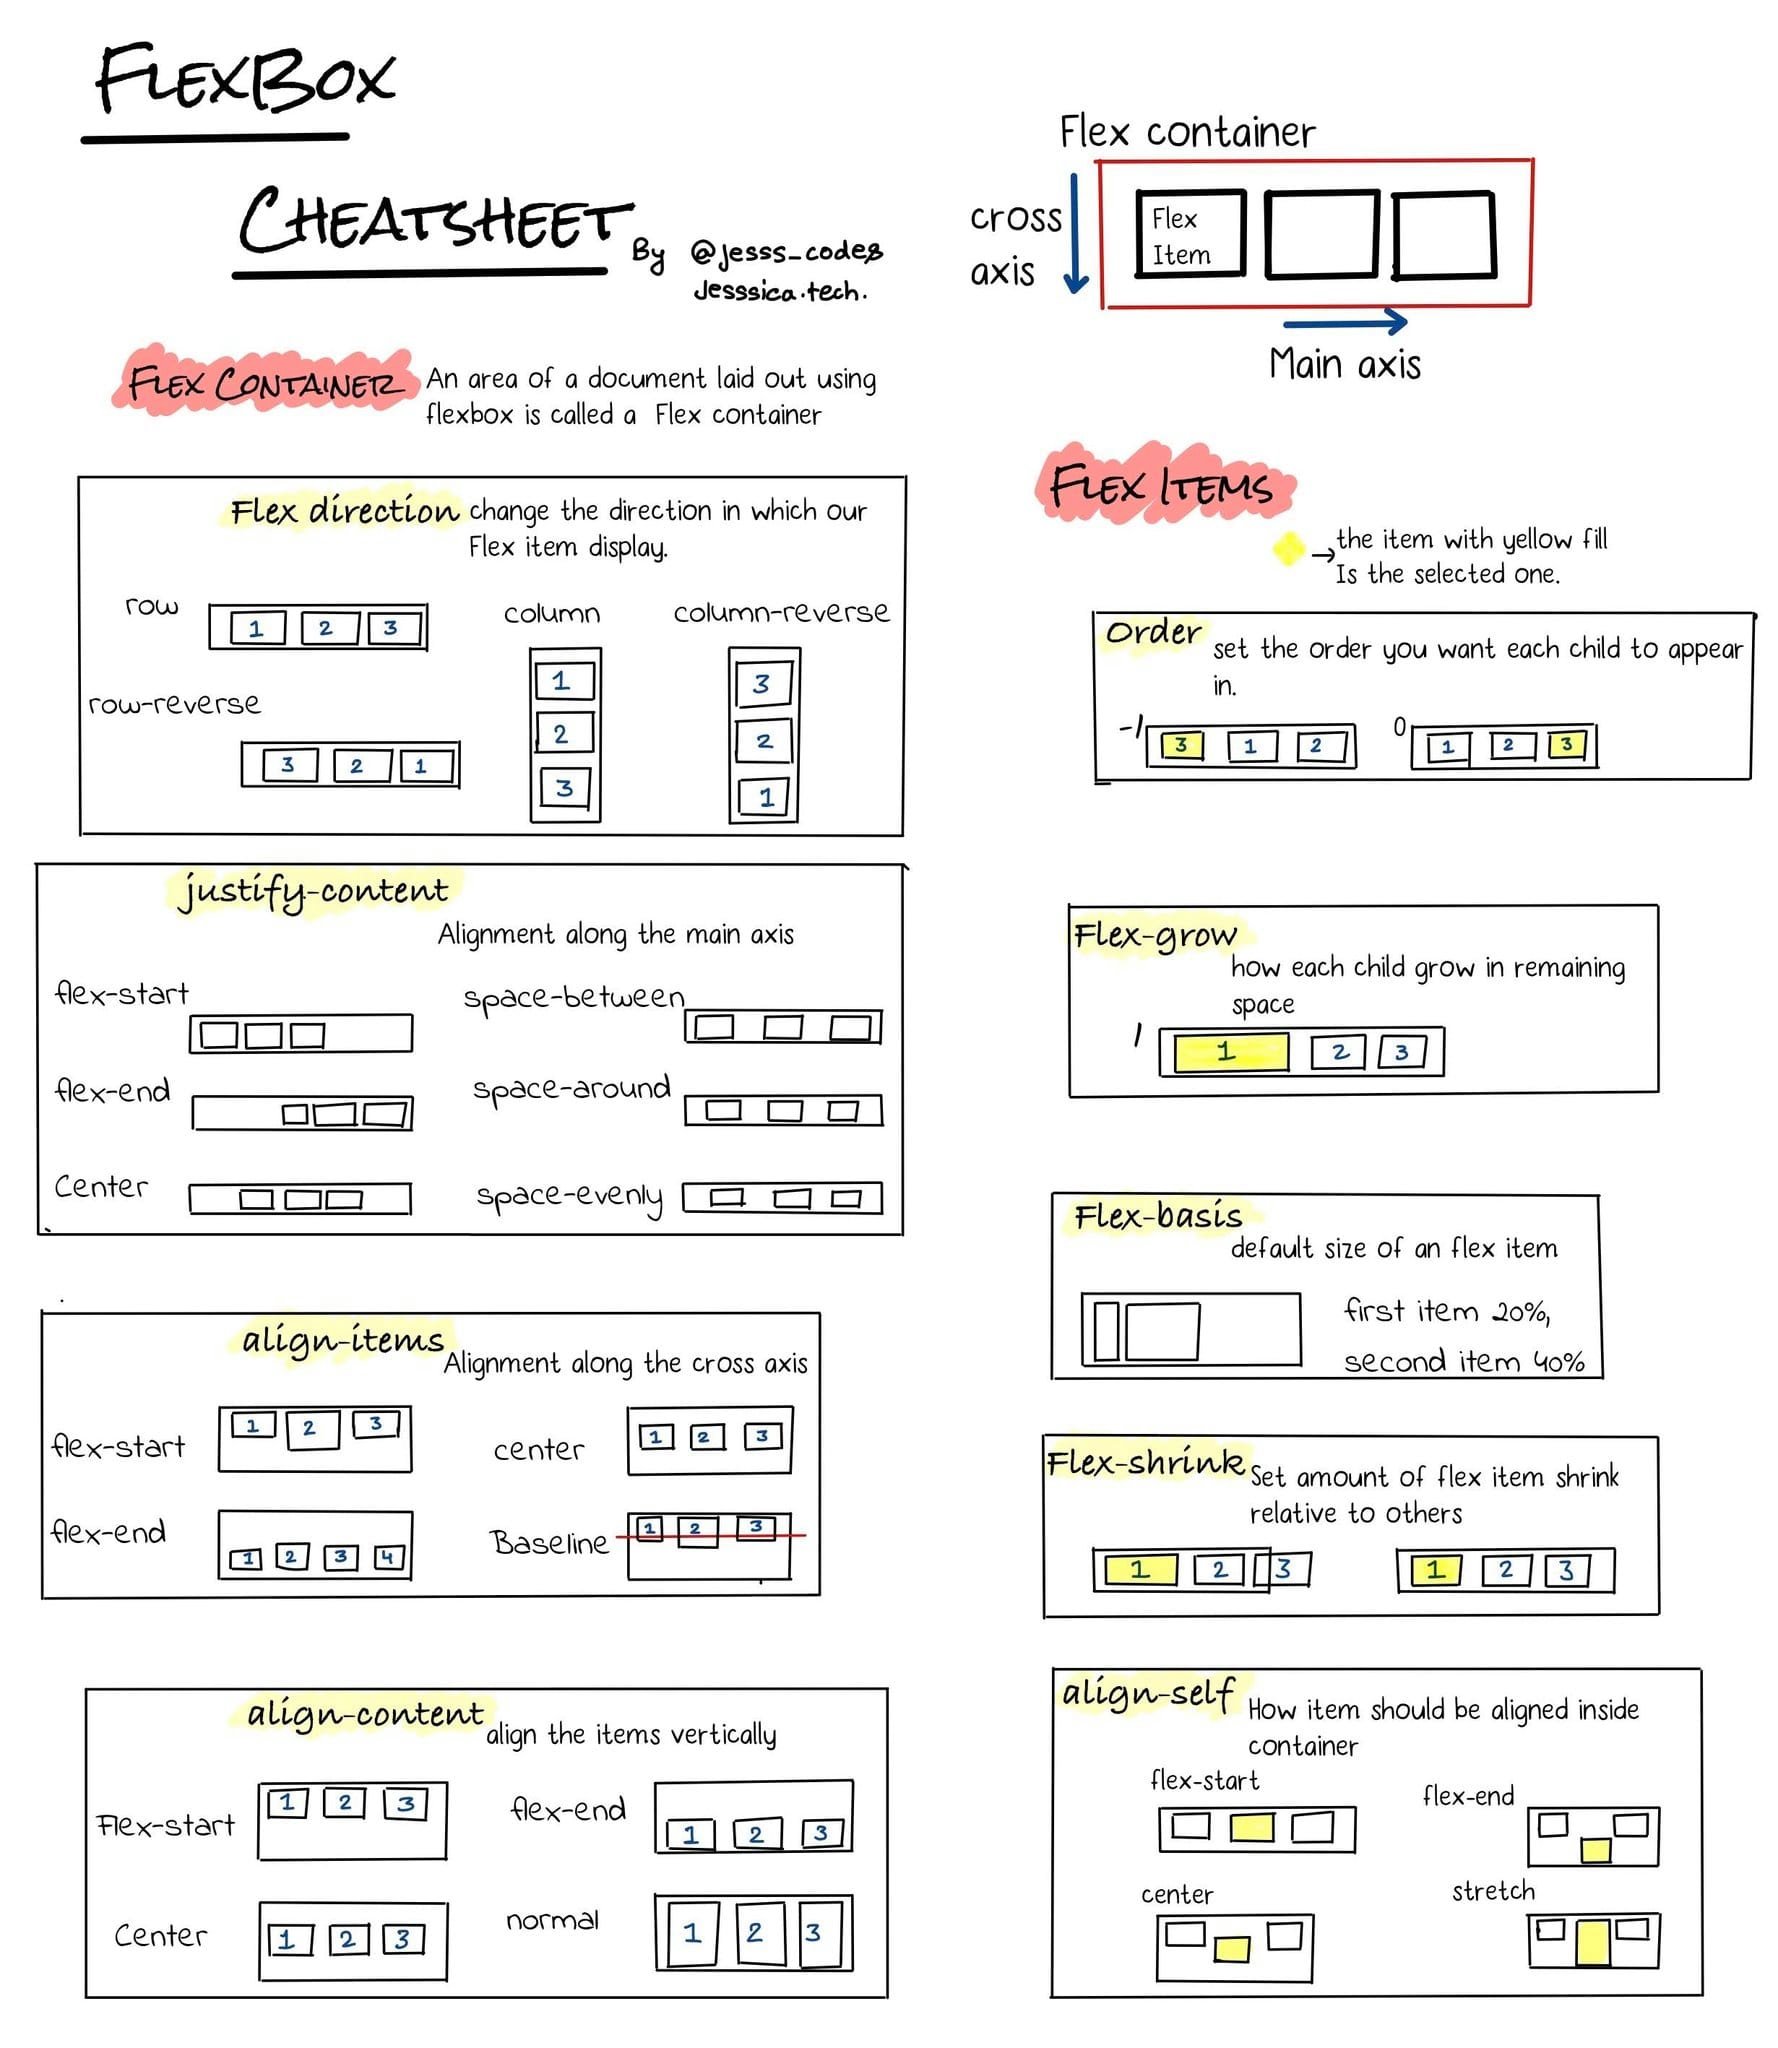 FLEXBOX
CHEATSHEET
By @jesss_codes
Jesssica.tech.
Flex container
cross
axis
Flex
Item
Main axis
FLEX CONTAINER
An area of a document laid out using
flexbox is called a Flex container
Flex direction
change the direction in which our
Flex item display.
row
1 2 3
row-reverse
3 2 1
column
1
2
3
column-reverse
3
2
1
justify-content
Alignment along the main axis
flex-start
space-between
flex-end
space-around
Center
space-evenly
align-items
Alignment along the cross axis
flex-start
1 2 3
center
1 2 3
flex-end
1 2 3 4
Baseline
1 2 3
align-content
align the items vertically
Flex-start
1 2 3
flex-end
1 2 3
Center
1 2 3
normal
1 2 3
FLEX ITEMS
the item with yellow fill
Is the selected one.
Order
set the order you want each child to appear
in.
-1
3 1 2
0
1 2 3
Flex-grow
how each child grow in remaining
space
1
1 2 3
Flex-basis
default size of an flex item
first item 20%,
second item 40%
Flex-shrink
Set amount of flex item shrink
relative to others
1 2 3
1 2 3
align-self
How item should be aligned inside
container
flex-start
flex-end
center
stretch